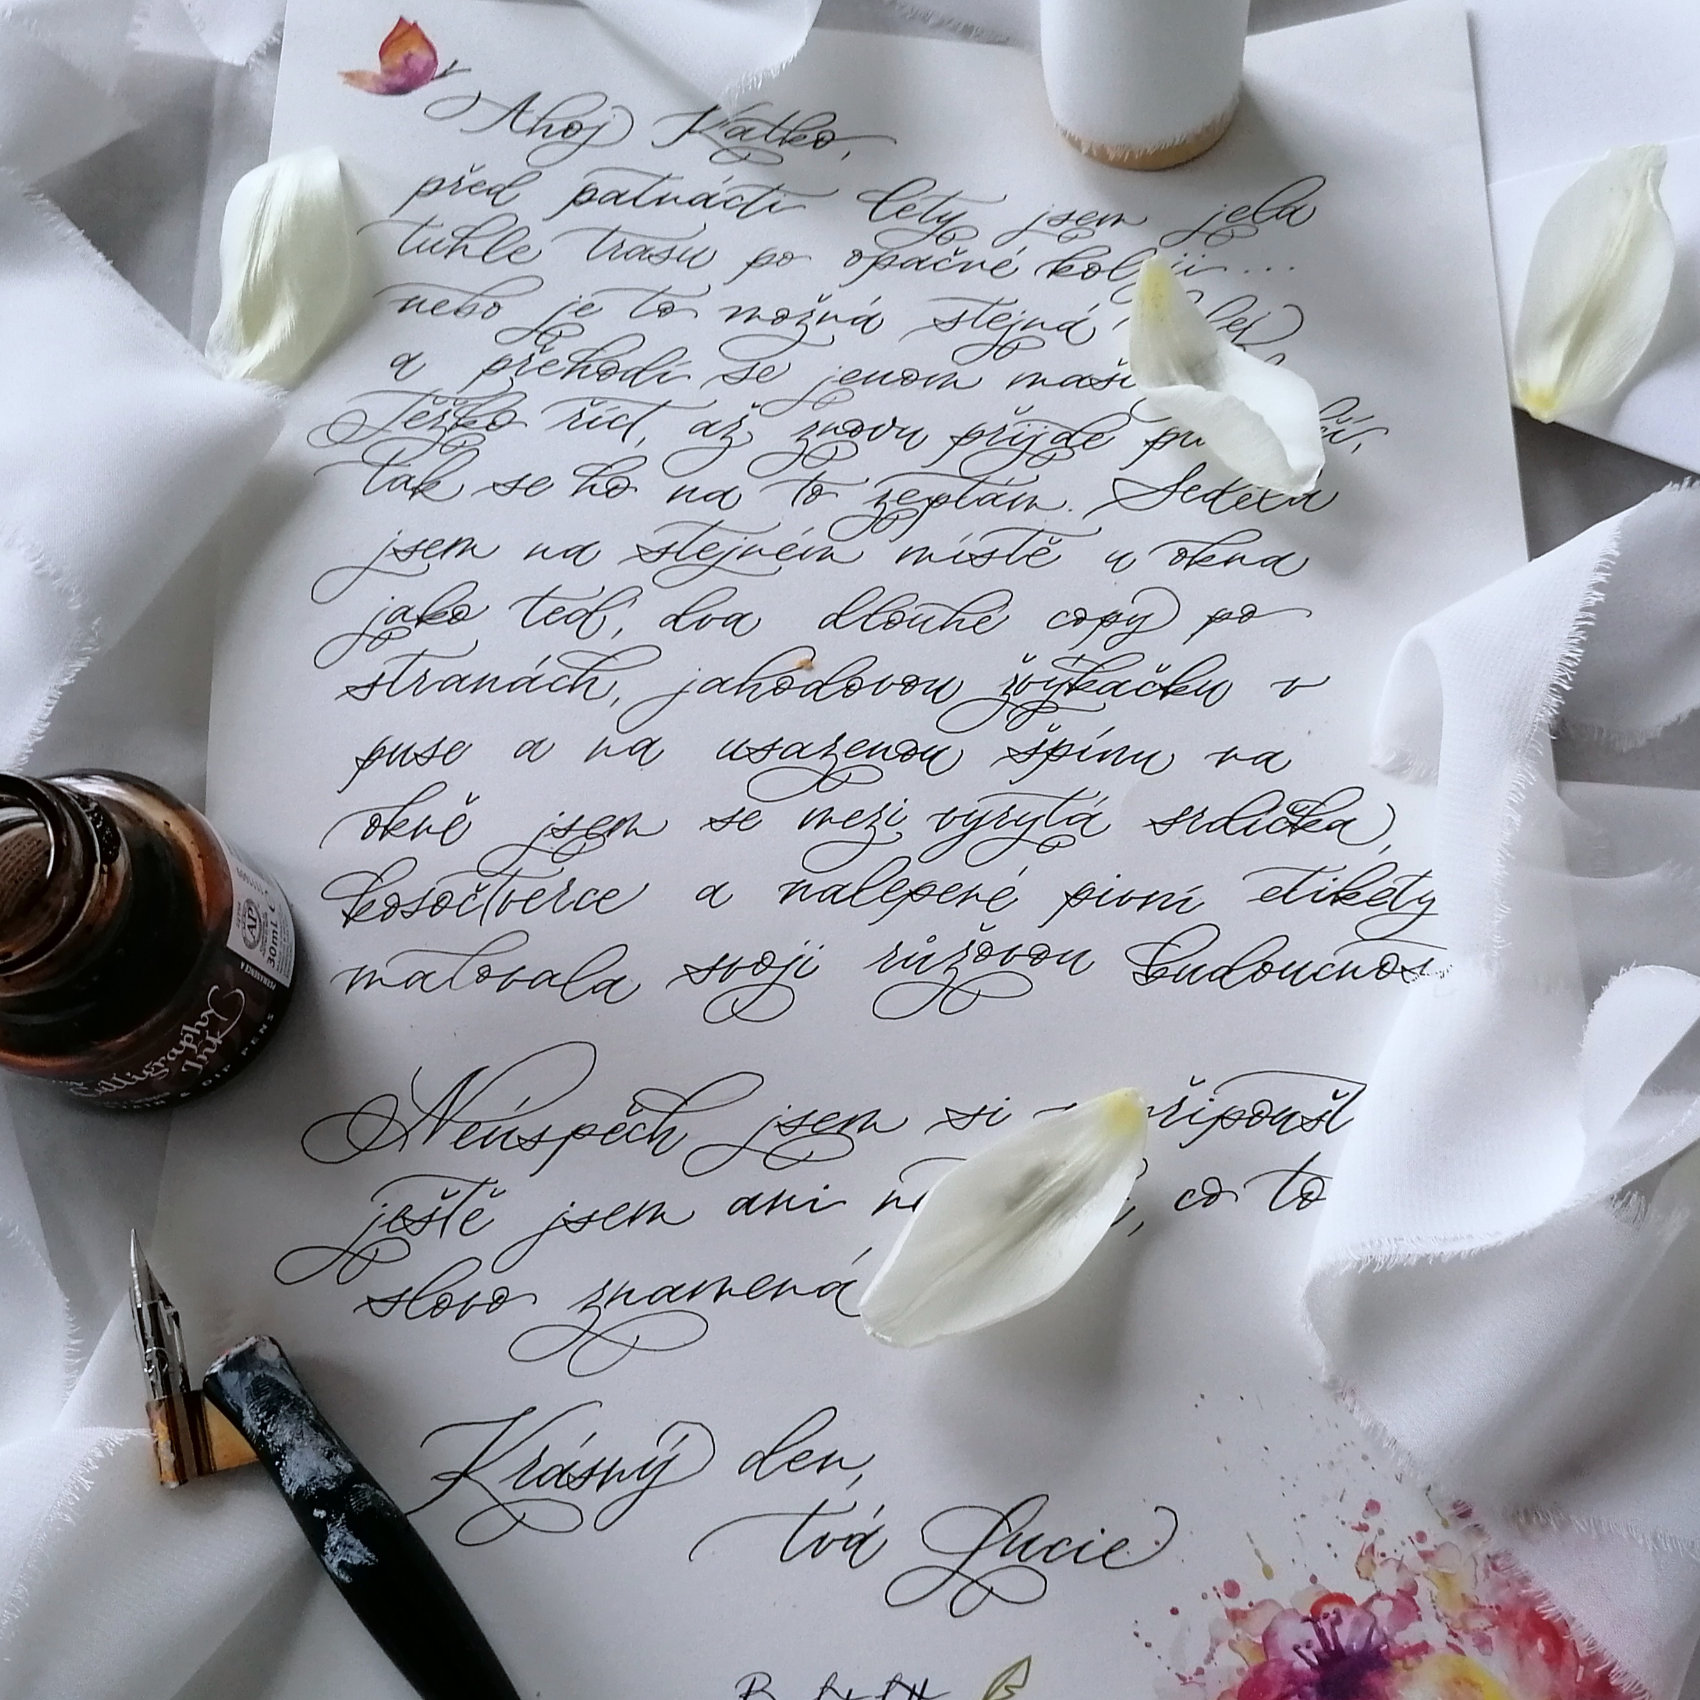 Ahoj Katko,
před patnácti lety jsem jela
tuhle trasu po opačné koleji...
nebo je to možná stejná kolej
a přehodí se jenom
Těžko říct, až znovu přijde
tak se ho na to zeptám. Seděla
jsem na stejném místě u okna
jako teď, dva dlouhé copy po
stranách, jahodovou žvýkačku v
puse a na usazenou špínu na
okně jsem se mezi vyrytá srdíčka,
kosočtverce a nalepené pivní etikety
malovala svoji růžovou budoucnos
Neúspěch jsem si
ještě jsem ani co to
slovo znamená
Krásný den,
tvá Lucie
Calligraphy
Ink
30ml
AP